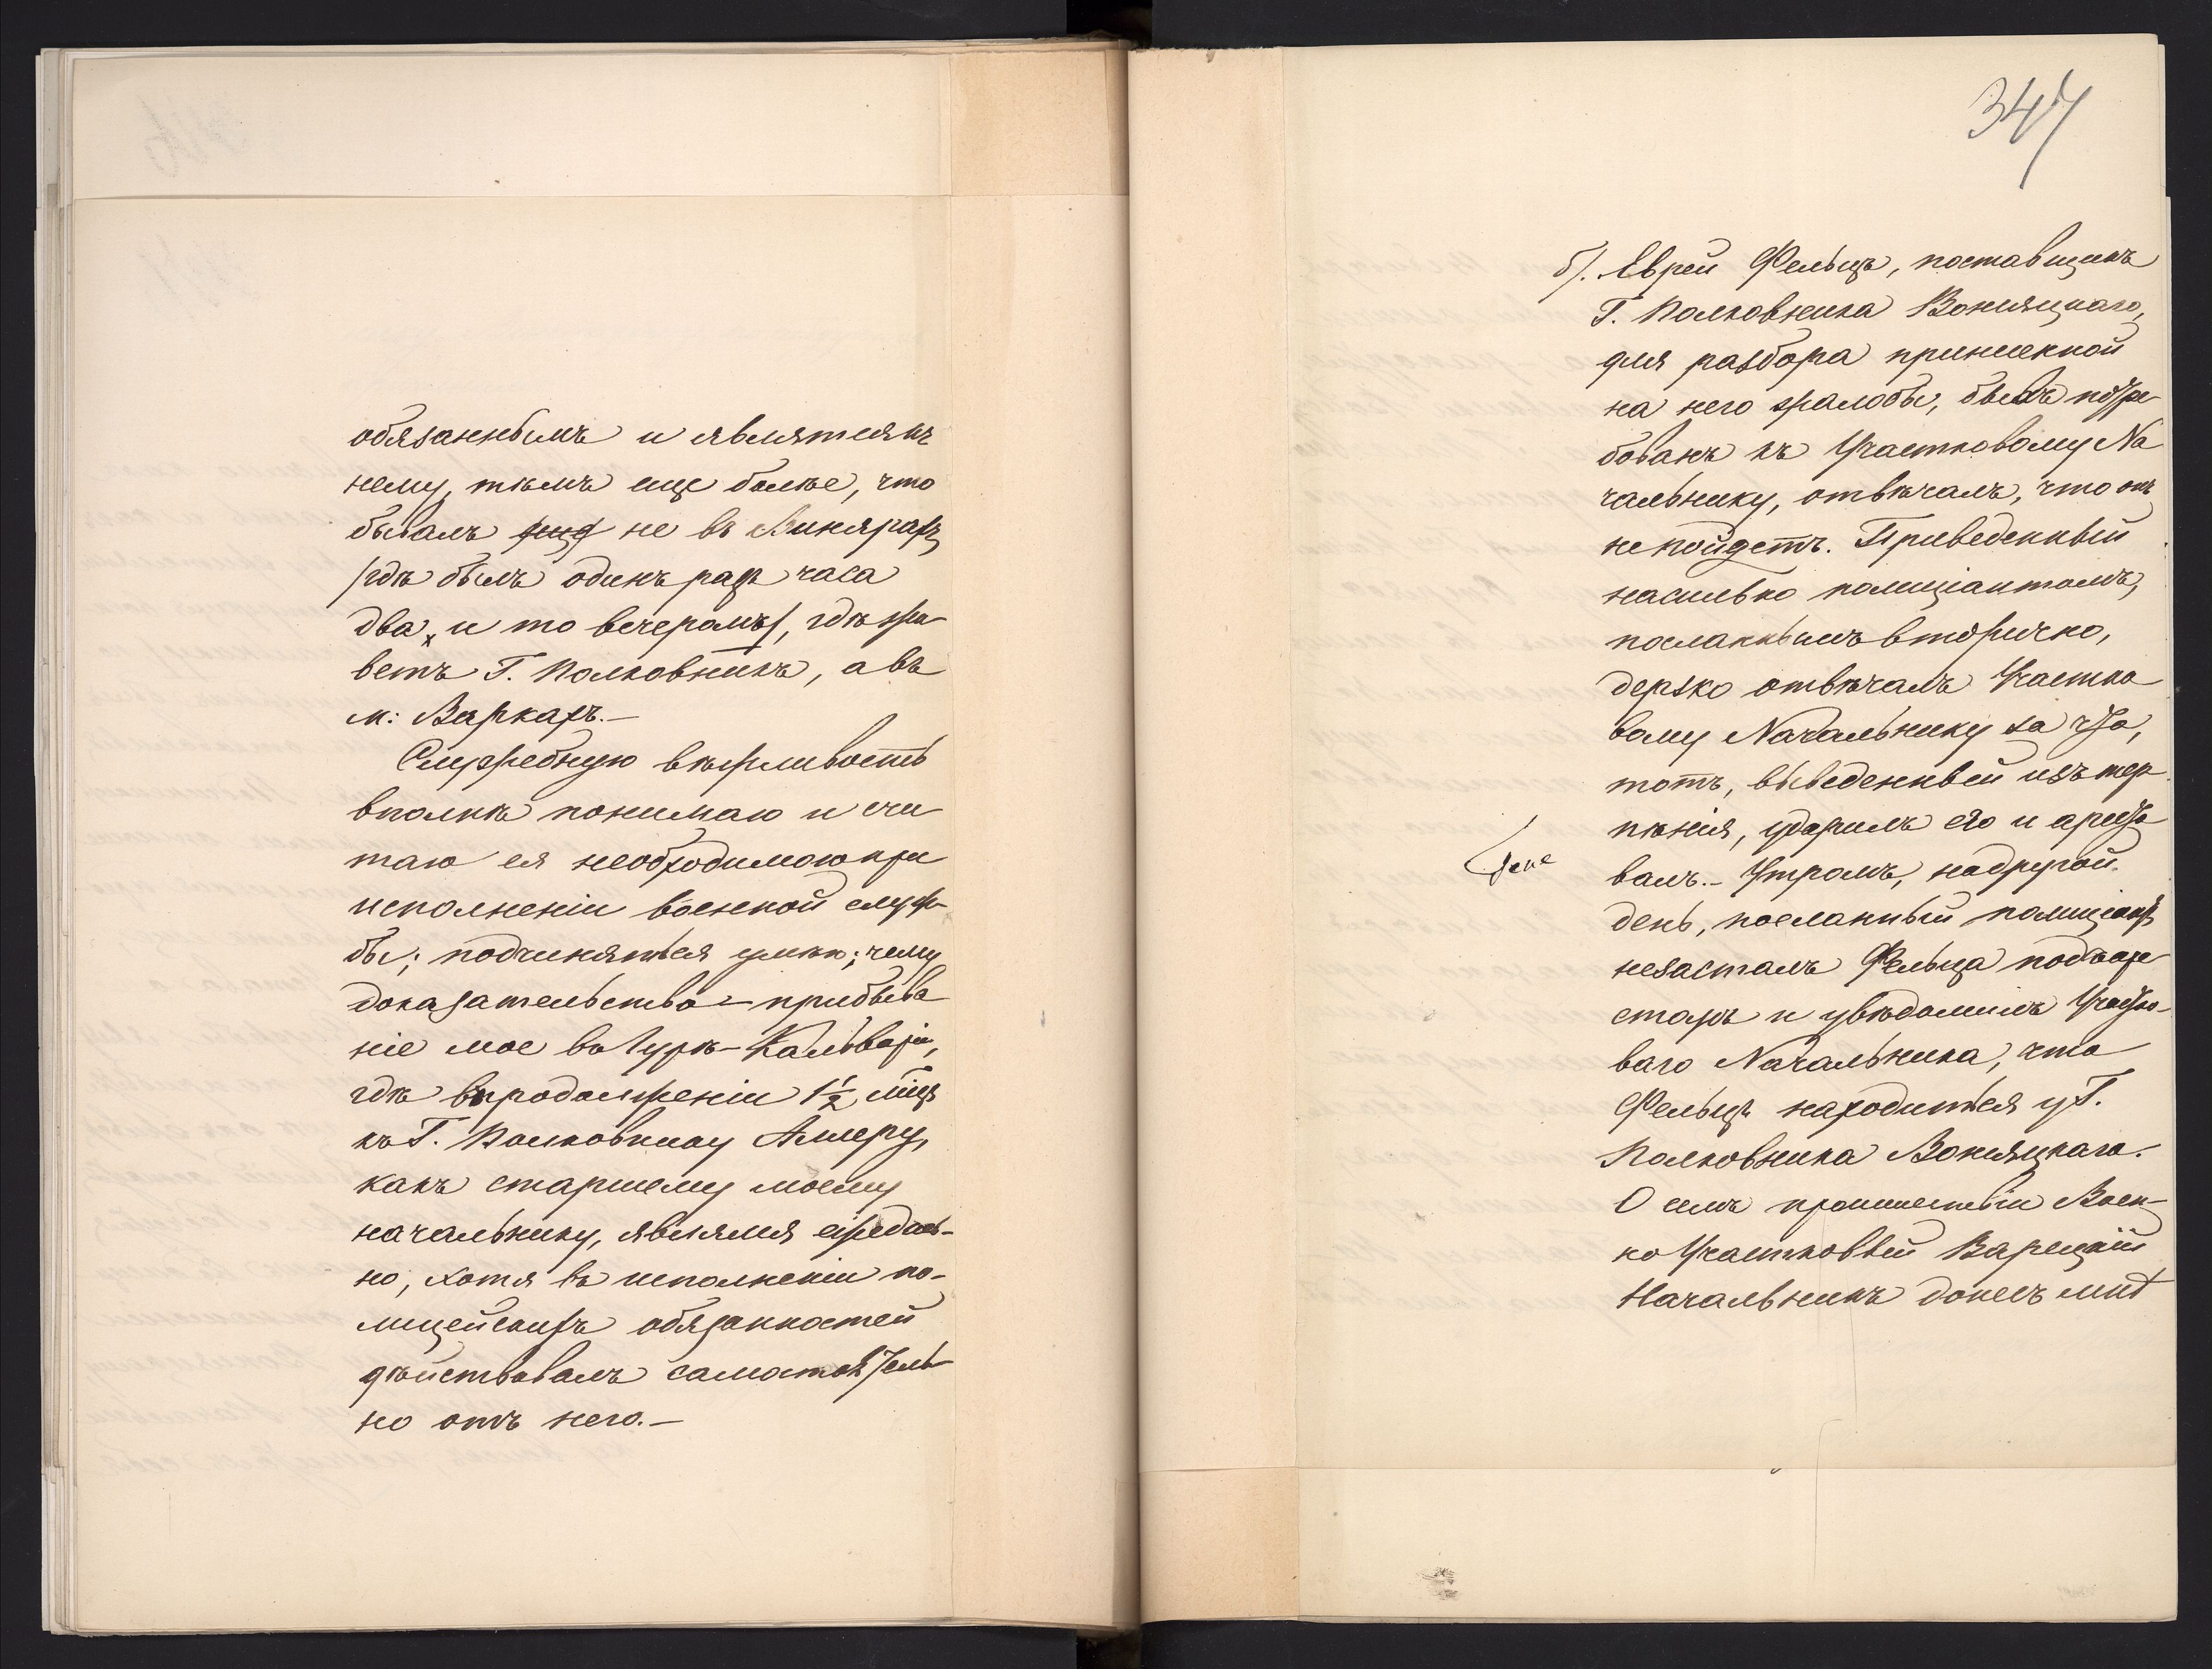 обязаннымъ и являтся къ
нему, тѣмъ еще болѣе, что
бывалъ не въ Винярахъ
/гдѣ былъ одинъ разъ часа
два, и то вечеромъ/, гдѣ жи-
ветъ Г. Полковникъ, а въ
м: Варкахъ.—
Служебную вѣжливость
вполнѣ понимаю и счи
таю ея необходимою при
исполненіи военной служ-
бы; подчиняться умѣю; чему
доказательство – прибыва
ніе мое въ Гурѣ-Кальваріи,
гдѣ впродолженіи 1½ мѣц
къ Г. Полковнику
какъ старшему моему
начальнику, являлся ежеднев-
но, хотя въ исполненіи по-
лицейскихъ обязанностей
дѣйствовалъ самостоятель-
но отъ него.—
347
б). Еврей Фельцъ, поставщикъ
Г. Полковника Вонляцкаго,
для разбора принесенной
на него жалобы, бывъ потре-
бованъ къ Участковому На
чальнику, отвѣчалъ, что онъ
не пойдетъ. Приведенный
насильно полиціантомъ,
посланнымъ вторично,
дерзко отвѣчалъ Участко
вому Начальнику за что,
тотъ, выведенный изъ тер
пѣнія, ударилъ его и аресто
валъ.– Утромъ, на другой
день, посланный полиціантъ
не засталъ Фельца подъ аре
стомъ и увѣдомилъ Участко-
ваго Начальника, что
Фельцъ находится у Г.
Полковника Вонляцкаго.
О семъ происшествіи Воен-
но Участковый Варецкій
Начальникъ донесъ мнѣ